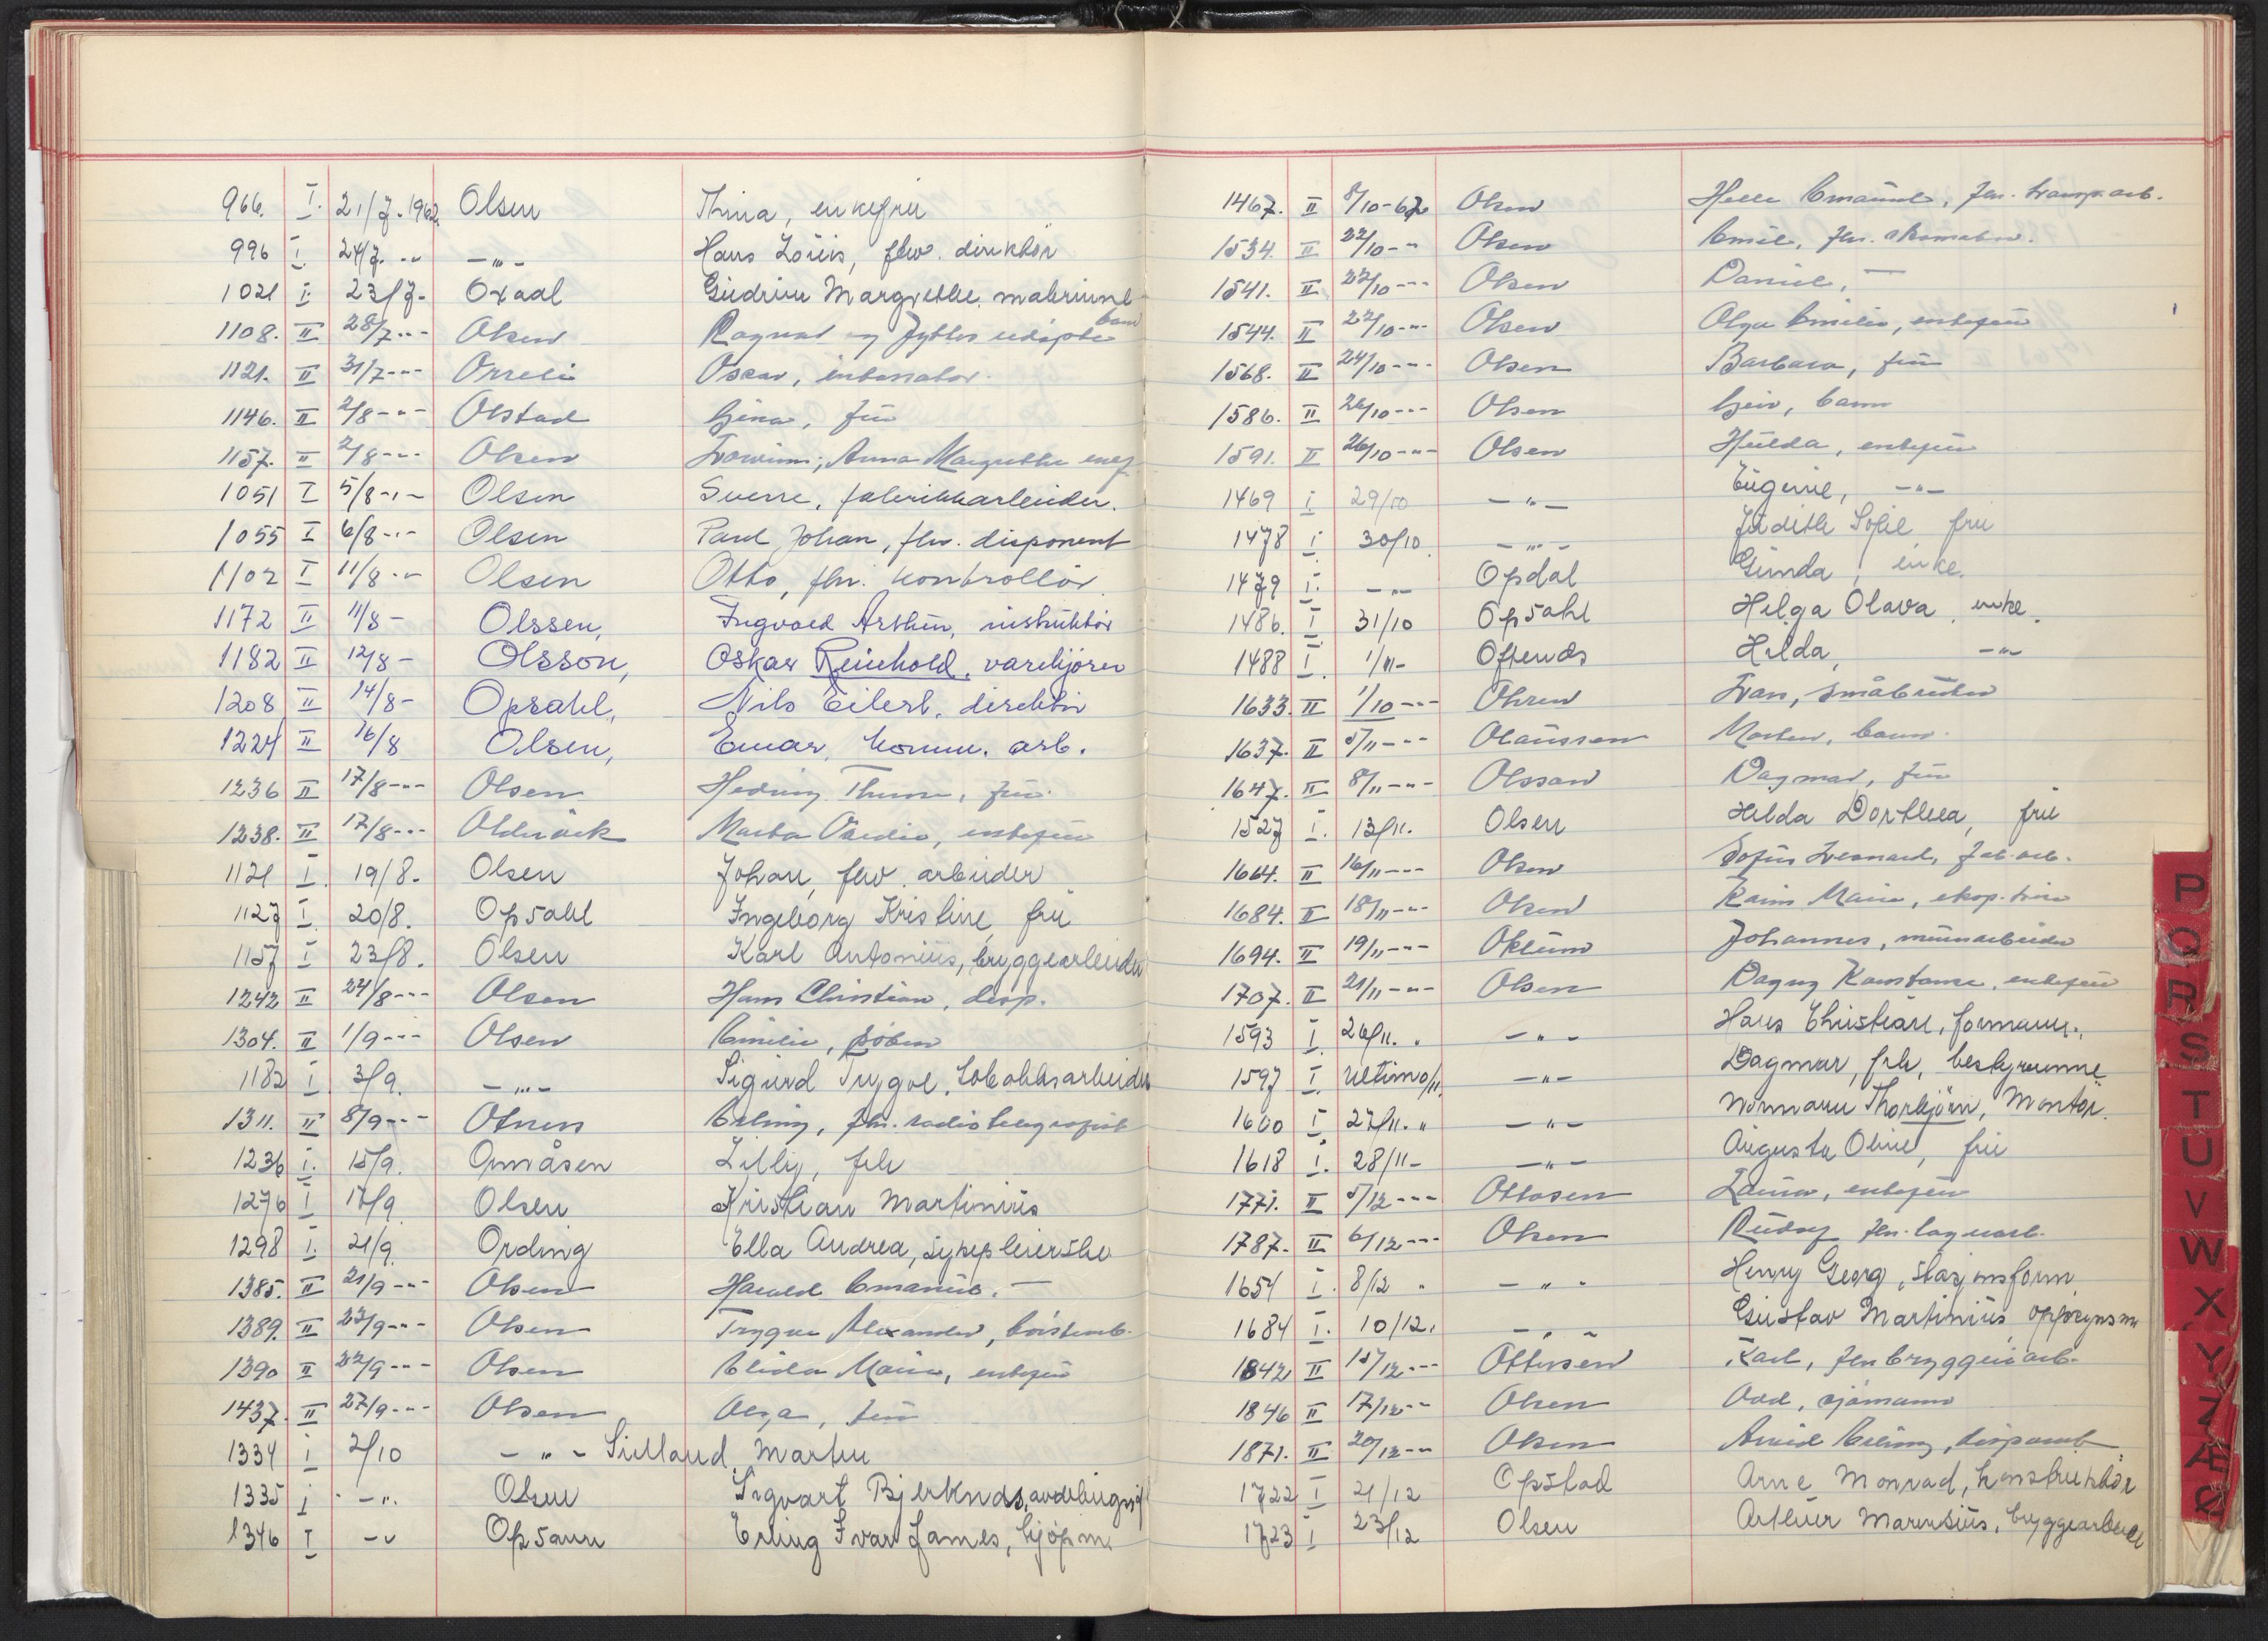 966. I. 21/7-1962 Olsen Thina, enkefru
996 I. 24/7. -"- -"- Hans Louis, fhv. direktør
1021 I. 23/7- Oxaal Gudrun Margrethe, malerinne
1108. II 28/7-"- Olsen Ragnar og Jyttes udøpte barn
1121. II 31/7-"- Orreli Oscar,
1146. II 2/8-"- Olstad Gina, fru
1157. II 2/8-"- Olsen Anna Margrethe enkf.
1051 I 5/8-"- Olsen Sverre, fabrikkarbeider.
1055 I 6/8-"- Olsen Paul Johan, fhv. disponent
1102 I 11/8-"- Olsen Otto, fhv. kontrollør
1172 II 11/8- Olssen, Ingvald Arthur, instruktør
1182 II 12/8- Olsson, Oskar Reinhold, varekjører
1208 II 14/8- Opsahl, Nils Eilert, direktør
1224 II 16/8 Olsen, Einar, komm. arb.
1236 II 17/8-"- Olsen Hedvig, fru.
1238. II 17/8-"- Marta enkefru
1121 I. 19/8. Olsen Johan, fhv. arbeider
1127 I. 20/8. Opsahl Ingeborg Kristine, fru
1157 I 23/8. Olsen Karl Antonius, bryggearbeider
1242 II 24/8-"- Olsen Hans Christian, disp.
1304. II 1/9-"- Olsen Emilie, frøken
1182 I. 3/9. -"- Sigurd Trygve, tobakksarbeider
1311. II 8/9-"- Otnes Erling, fhv. radiotelegrafist
1236 I. 15/9. Omåsen Lilly, frk
1276 I 17/9 Olsen Kristian Martinius
1298 I. 21/9. Ording Ella Andrea, sykepleierske
1385. II 21/9-"- Olsen Harald Emanuel. —
1389. II 22/9-"- Olsen Trygve Alexander,
1390 II 22/9-"- Olsen Elida Marie, enkefru
1437. II 27/9-"- Olsen Olga, fru
1334 I 2/10 -"- Martin
1335 I -"- Olsen Sigvart Bjerknes,
1346 I -"- Opsann Erling Ivar James, kjøpm.
1467. II 8/10-62 Olsen Emanuel, fhv. transp.arb.
1534. II 22/10-"- Olsen Emil, fhv. skomaker.
1541. II 22/10-"- Olsen Daniel, —
1544. II 22/10-"- Olsen Olga Emilie, enkefru
1568. II 24/10-"- Olsen Barbara, fru
1586. II 26/10-"- Olsen Geir, barn
1591. II 26/10-"- Olsen Hulda, enkefru
1469 I. 29/10 -"- Eugenie, -"-
1478 I. 30/10. -"- Judith Sofie fru
1479 I. -"- Opdal Gunda, enke.
1486. I 31/10 Opsahl Helga Olava, enke.
1488 I. 1/11- Oftenes Hilda, -"-
1633. II 1/10-"- Ohren Ivan, småbruker
1637. II 5/11-"- Olaussen Morten, barn.
1647. II 8/11-"- Olssøn Dagmar, fru
1527 I. 13/11. Olsen Hilda Dorthea, fru
1664. II 16/11-"- Olsen Sofus Leonard, fab.arb.
1684. II 18/11-"- Olsen Marie, eksp.
1694. II 19/11-"- Johannes, murarbeider
1707. II 21/11-"- Olsen Dagny Konstance, enkefru
1593 I. 26/11. " -"- Hans Christian, formann.
1597 I. Ultimo/11. -"- Dagmar, frk, bestyrerinne
1600 I 27/11. " -"- Normann Thorbjørn, Montør.
1618 I. 28/11- -"- Augusta Oline, fru
1771. II 5/12-"- Ottosen Laura, enkefru
1787. II 6/12-"- Olsen Rudolf fhv. lagerarb.
1654 I. 8/12 " -"- Henry Georg, stasjonsform.
1684 I. 10/12. -"- Gustav Martinius, oppsynsm
1842 II 15/12-"- Ottersen Karl, fhv. bryggeriarb.
1846 II 17/12-"- Olsen Odd, sjømann
1871. II 20/12-"- Olsen Arvid Erling, disponent
1722 I 21/12 Opstad Arne Monrad, konstruktør
1723 I 23/12 Olsen Arthur Marensius, bryggearbeid
P
Q
R
S
T
U
V
W
X
Y
Z
Æ
Ø